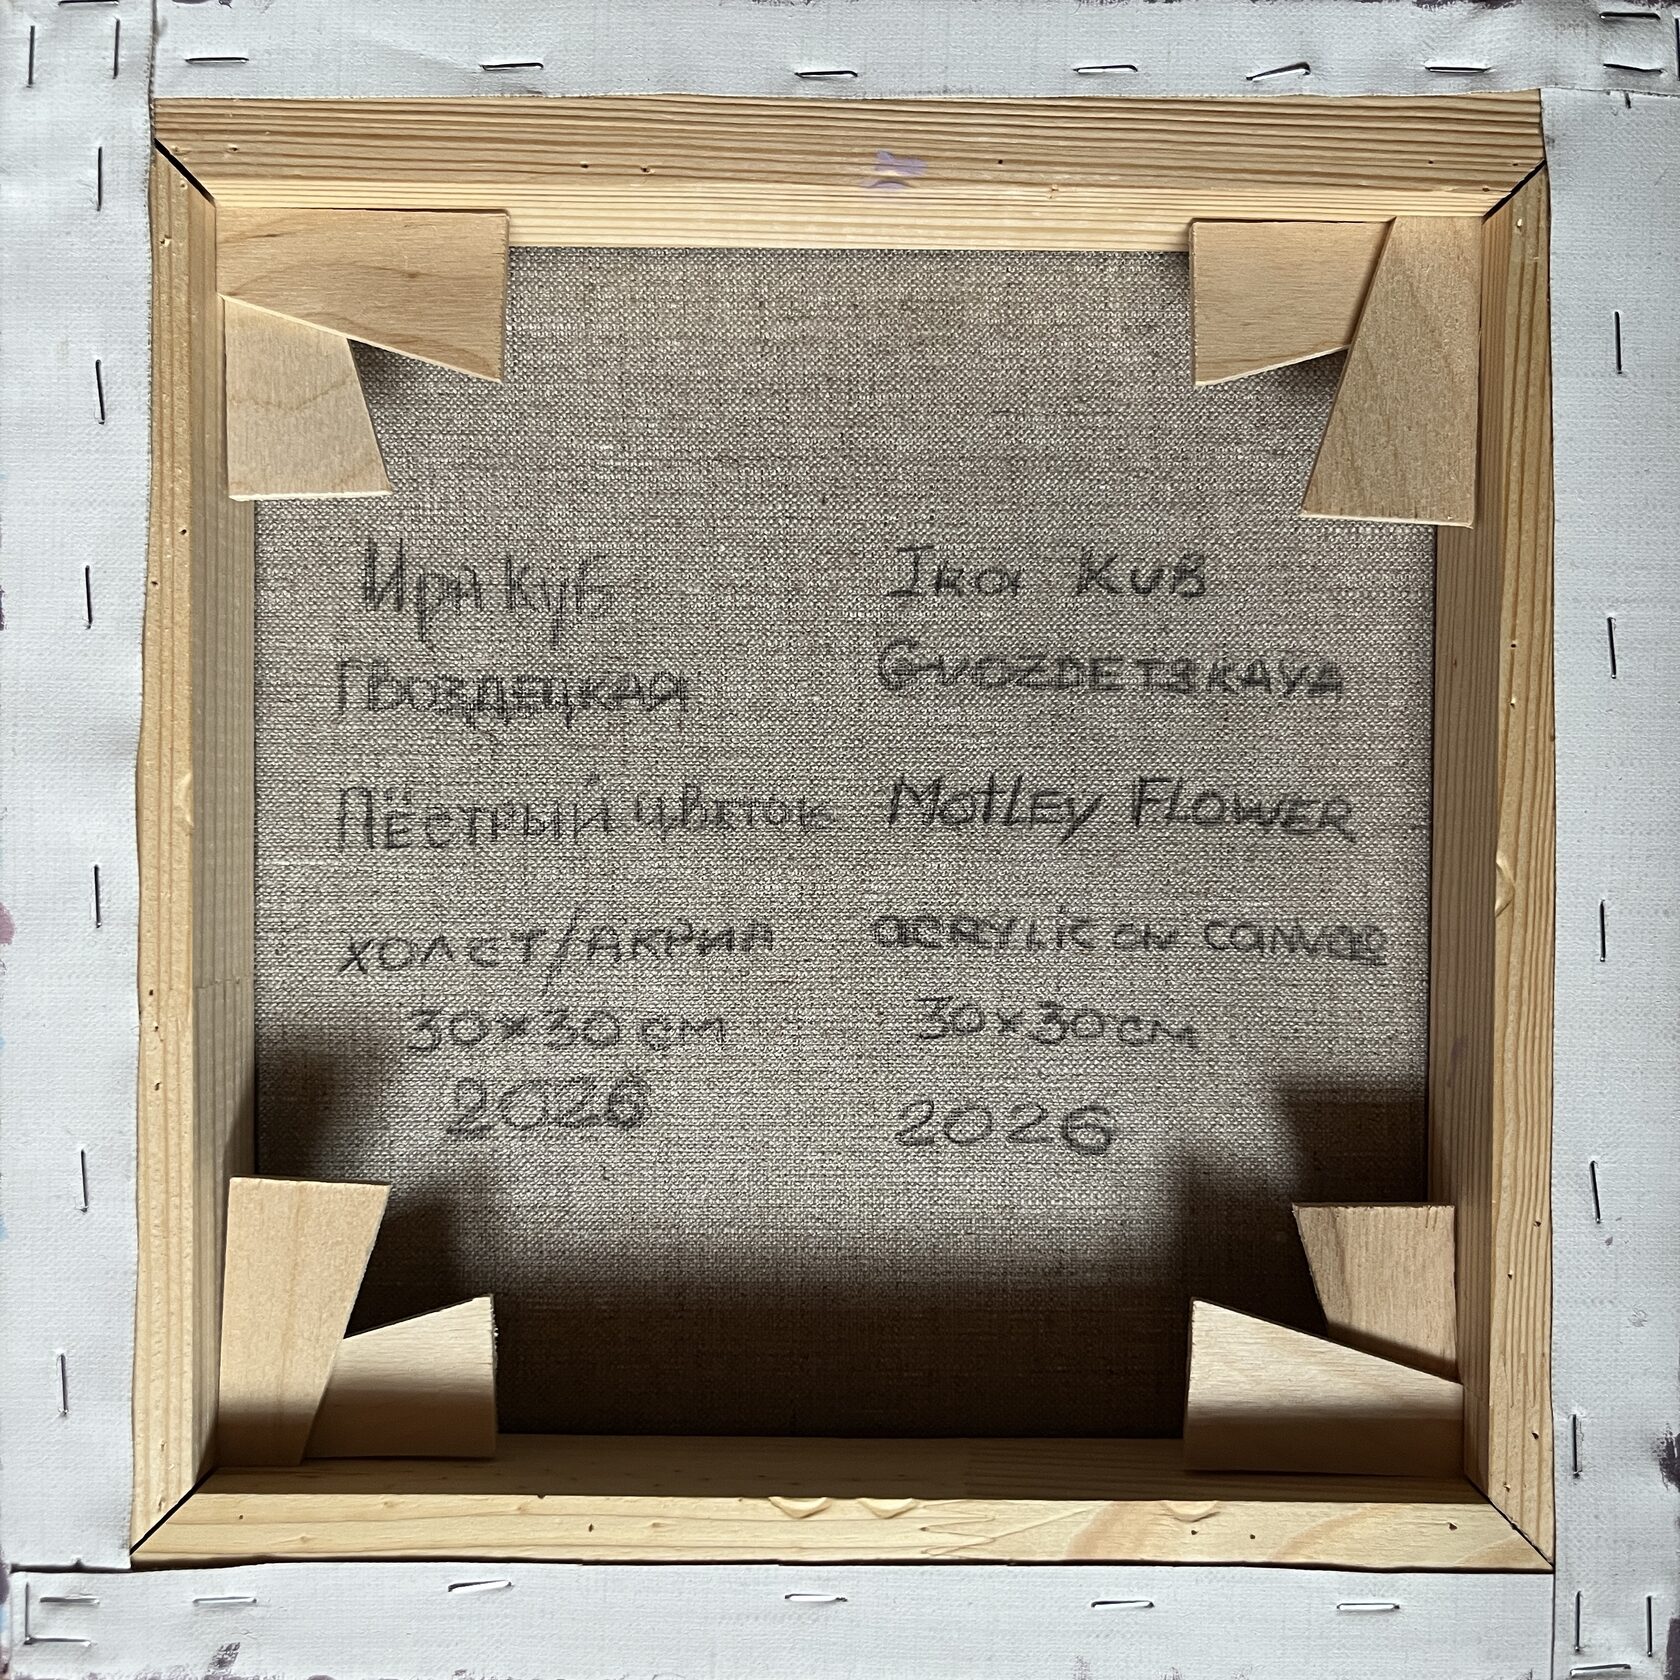 Ира Куб
Гвоздецкая
Пёстрый цветок
холст/акрил
30x30 см
2026
Ira Kub
Gvozdetskaya
Motley Flower
acrylic on canvas
30x30 cm
2026